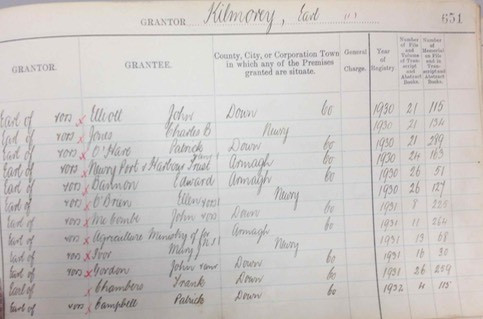 GRANTOR Kilmorey, Earl 651
GRANTOR. GRANTEE. County, City, or Corporation Town in which any of the Premises granted are situate. General Charge. Year of Registry Number of File and Volume of Transcript and Abstract Books. Number of Memorial on File and in Transcript and Abstract Books.
Earl of & ors x Elliott John Down Co 1930 21 115
Earl of & ors x Jones Charles B Newry 1930 21 134
Earl of & ors x O'Hare Patrick Down Co 1930 21 289
Earl of & ors x Newry Port & Harbour Trust Armagh Co 1930 24 163
Earl of & ors x Edward Armagh Co 1930 26 51
Earl of & ors x Ellen & ors Newry 1930 26 127
Earl of & ors x John & ors Down Co 1931 8
Earl of & ors x Agriculture Ministry of for Armagh Co 1931 11 264
Earl of & ors x Mary Newry 1931 13 68
Earl of & ors x Gordon John Down Co 1931 16 30
Earl of x Chambers Frank Down Co 1931 26
Earl of & ors x Campbell Patrick Down Co 1932 4 115